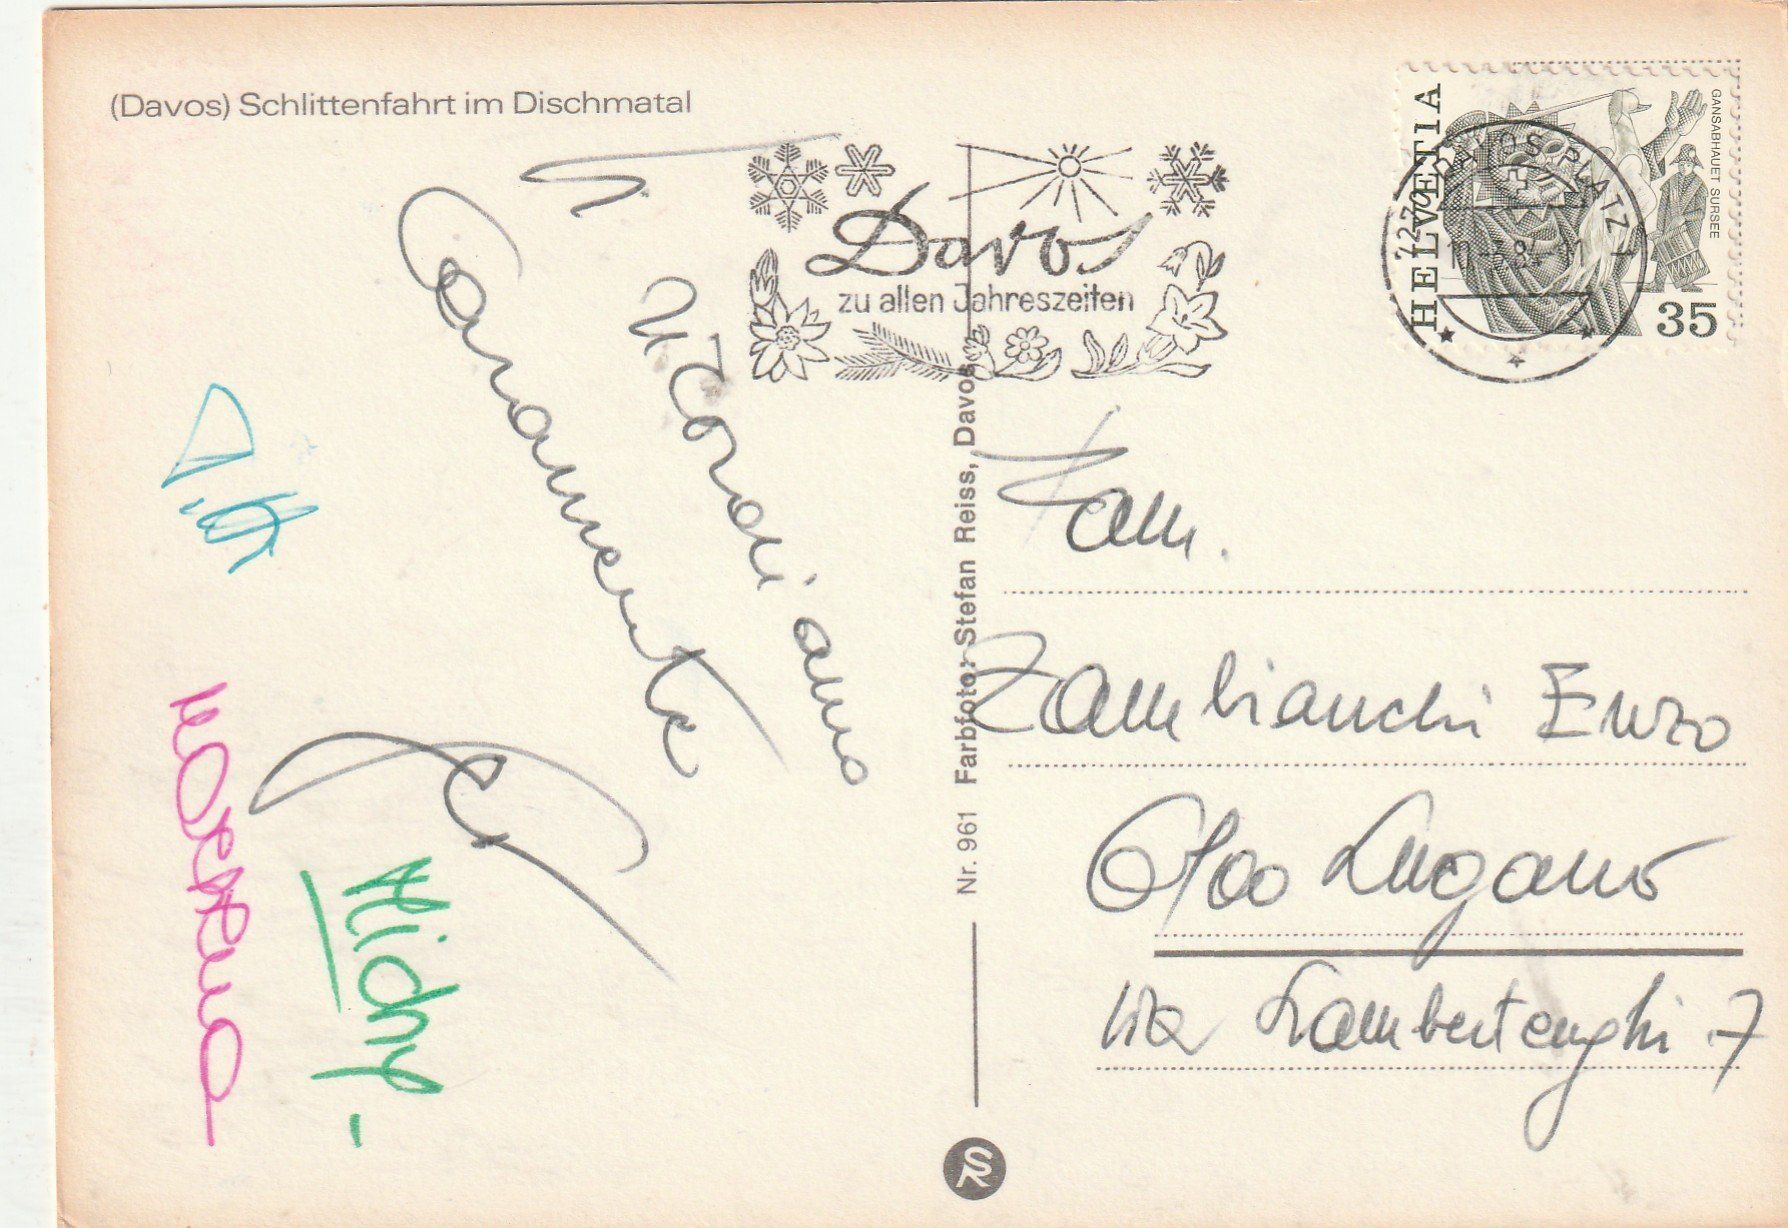 (Davos) Schlittenfahrt im Dischmatal
Vi ricordiamo
Caramente
Morena
Davos
zu allen Jahreszeiten
HELVETIA
GANSABHAUET SURSEE
35
7270 DAVOS PLATZ 1
Nr. 961 Farbfoto: Stefan Reiss, Davos
Fam.
Zambianchi Enzo
6900 Lugano
Via Lambertenghi 7
SR